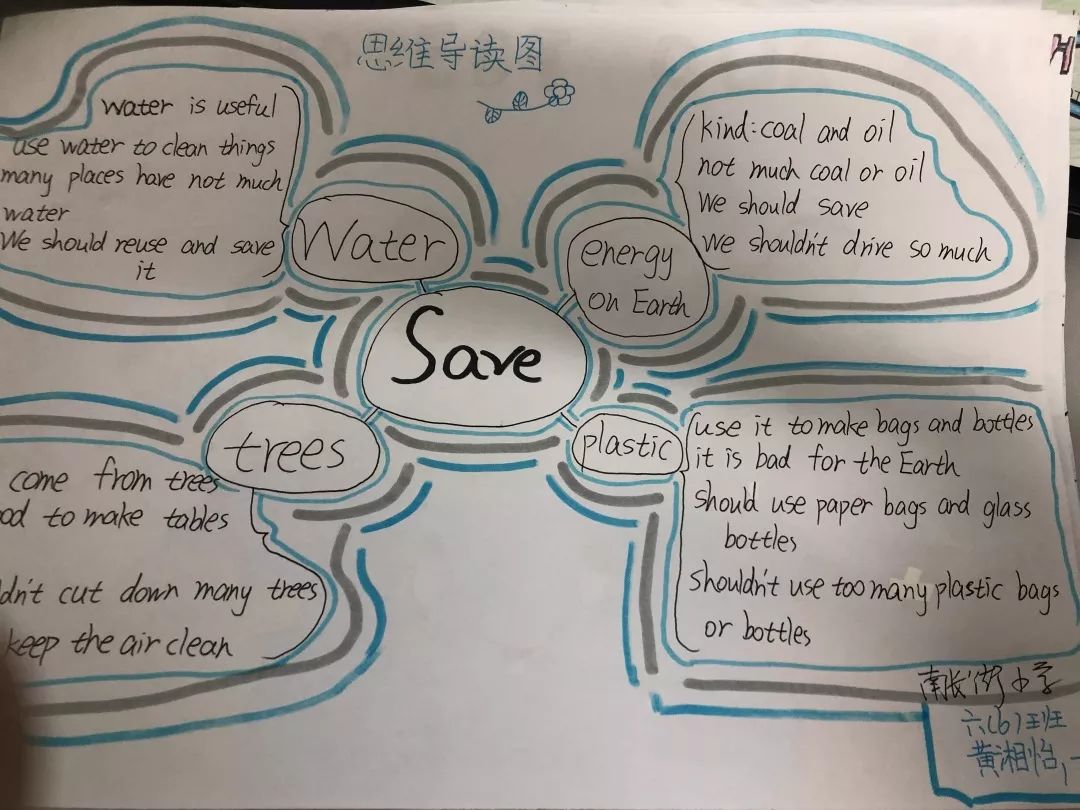 思维导读图
H
water is useful
use water to clean things
many places have not much
water
We should reuse and save
it
Water
kind: coal and oil
not much coal or oil
We should save
we shouldn't drive so much
energy
on Earth
Save
trees
come from trees
to make tables
cut down many trees
keep the air clean
plastic
use it to make bags and bottles
it is bad for the Earth
should use paper bags and glass
bottles
shouldn't use too many plastic bags
or bottles
南长街小学
六(6)班
黄湘怡